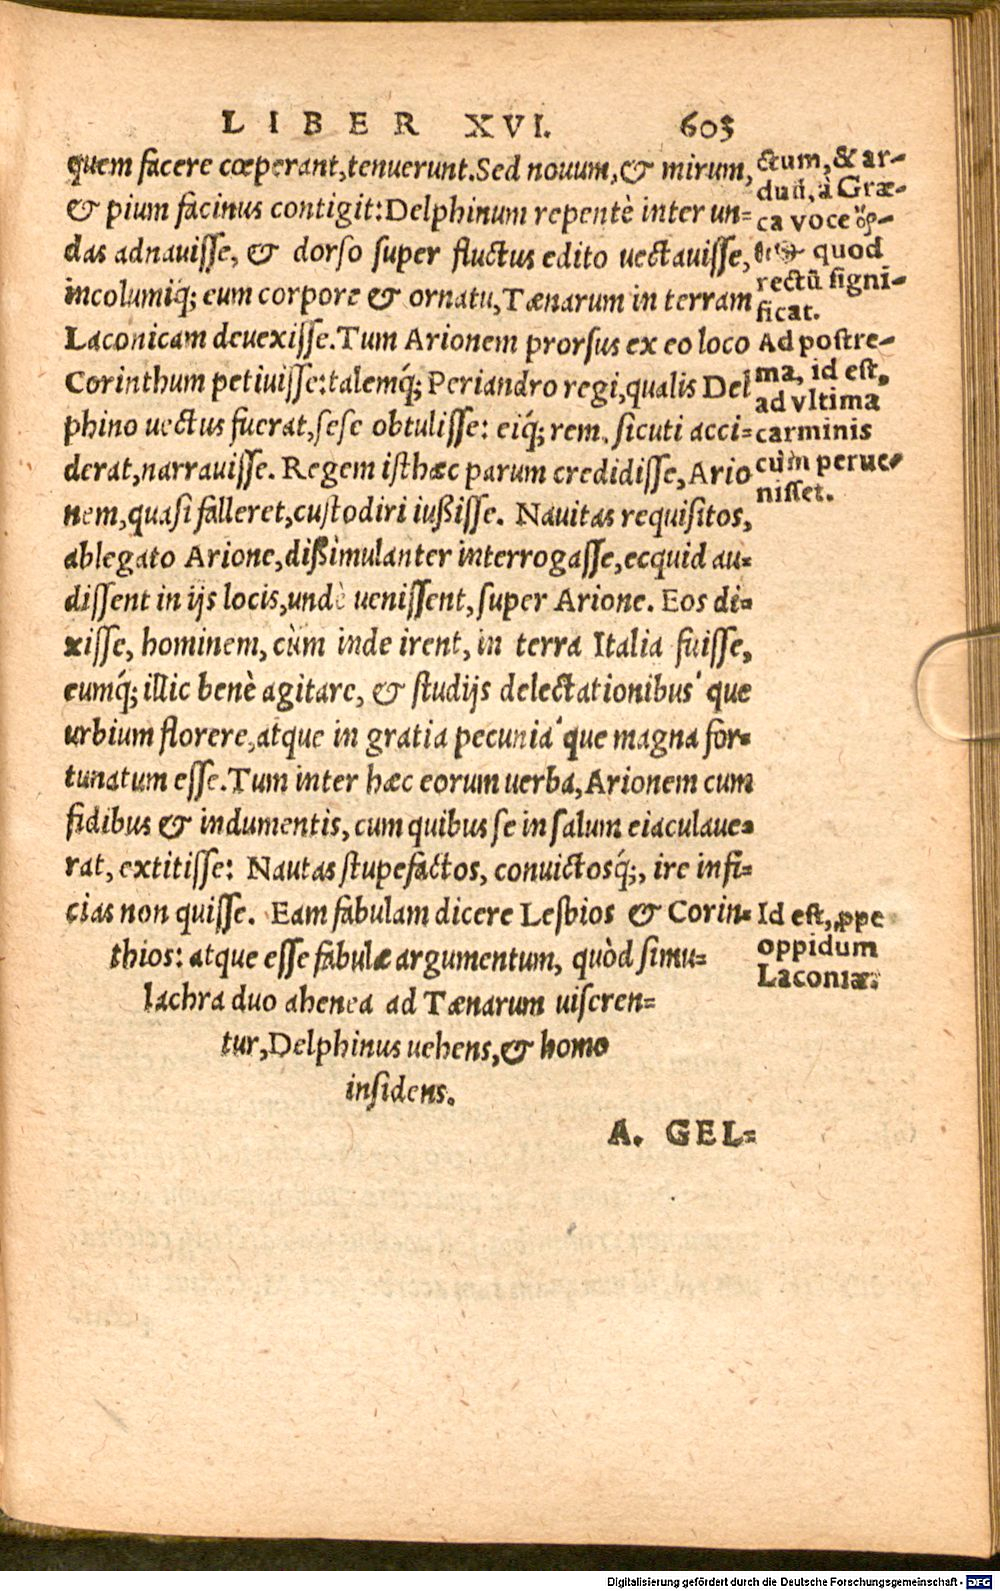 LIBER XVI. 603
quem facere cœperant, tenuerunt. Sed novum, & mirum,
& pium facinus contigit: Delphinum repentè inter un=
das adnavisse, & dorso super fluctus edito vectavisse,
incolumiq́; eum corpore & ornatu, Tænarum in terram
Laconicam devexisse. Tum Arionem prorsus ex eo loco
Corinthum petivisse: talemq́; Periandro regi, qualis Del
phino vectus fuerat, sese obtulisse: eiq́; rem, sicuti acci=
derat, narravisse. Regem isthæc parum credidisse, Ario
nem, quasi falleret, custodiri iußisse. Navitas requisitos,
ablegato Arione, dißimulanter interrogasse, ecquid au=
dissent in ijs locis, undè venissent, super Arione. Eos di=
xisse, hominem, cùm inde irent, in terra Italia fuisse,
eumq́; illic benè agitare, & studijs delectationibus' que
urbium florere, atque in gratia pecunia' que magna for=
tunatum esse. Tum inter hæc eorum verba, Arionem cum
fidibus & indumentis, cum quibus se in salum eiaculave=
rat, extitisse: Nautas stupefactos, convictosq́;, ire infi=
cias non quisse. Eam fabulam dicere Lesbios & Corin=
thios: atque esse fabulæ argumentum, quòd simu=
lachra duo ahenea ad Tænarum viseren=
tur, Delphinus vehens, & homo
insidens.
A. GEL=
ctum, & ar-
duũ, à Græ-
ca voce
quod
rectũ signi-
ficat.
Ad postre-
ma, id est,
ad vltima
carminis
cùm perue-
nisset.
Id est, ꝓpe
oppidum
Laconiæ.
Digitalisierung gefördert durch die Deutsche Forschungsgemeinschaft - DFG